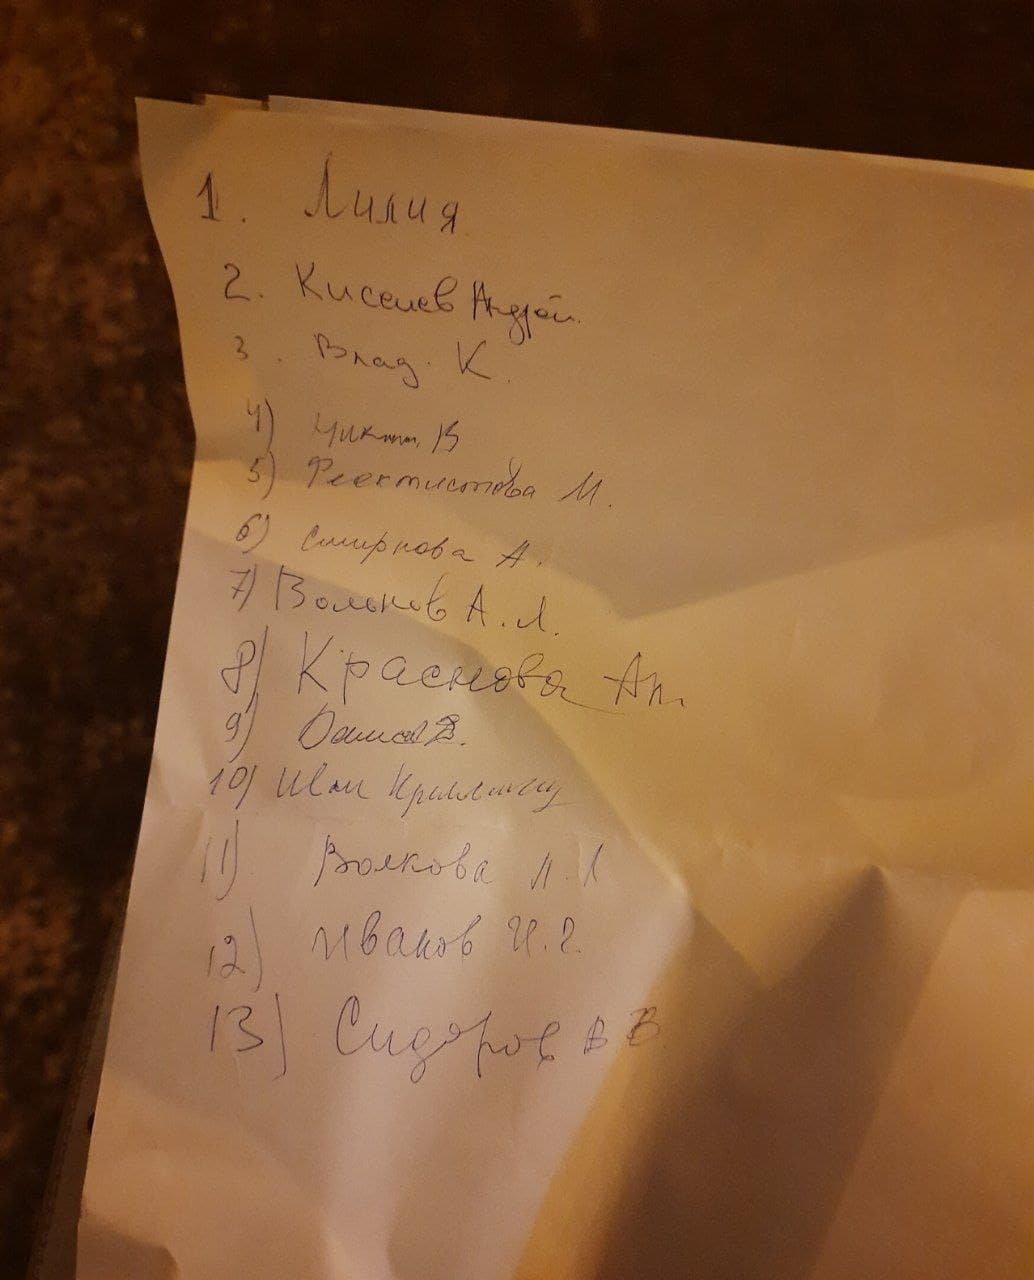 1. Лилия
2. Киселев Андрей.
3. Влад. К.
4) В
5) Феектистова М.
6) Смирнова А.
7) Вольнов А.Л.
8) Краснова Ан.
9)
10)
11) Волкова Л.Л
12) Иванов И.
13) Сидоров В В